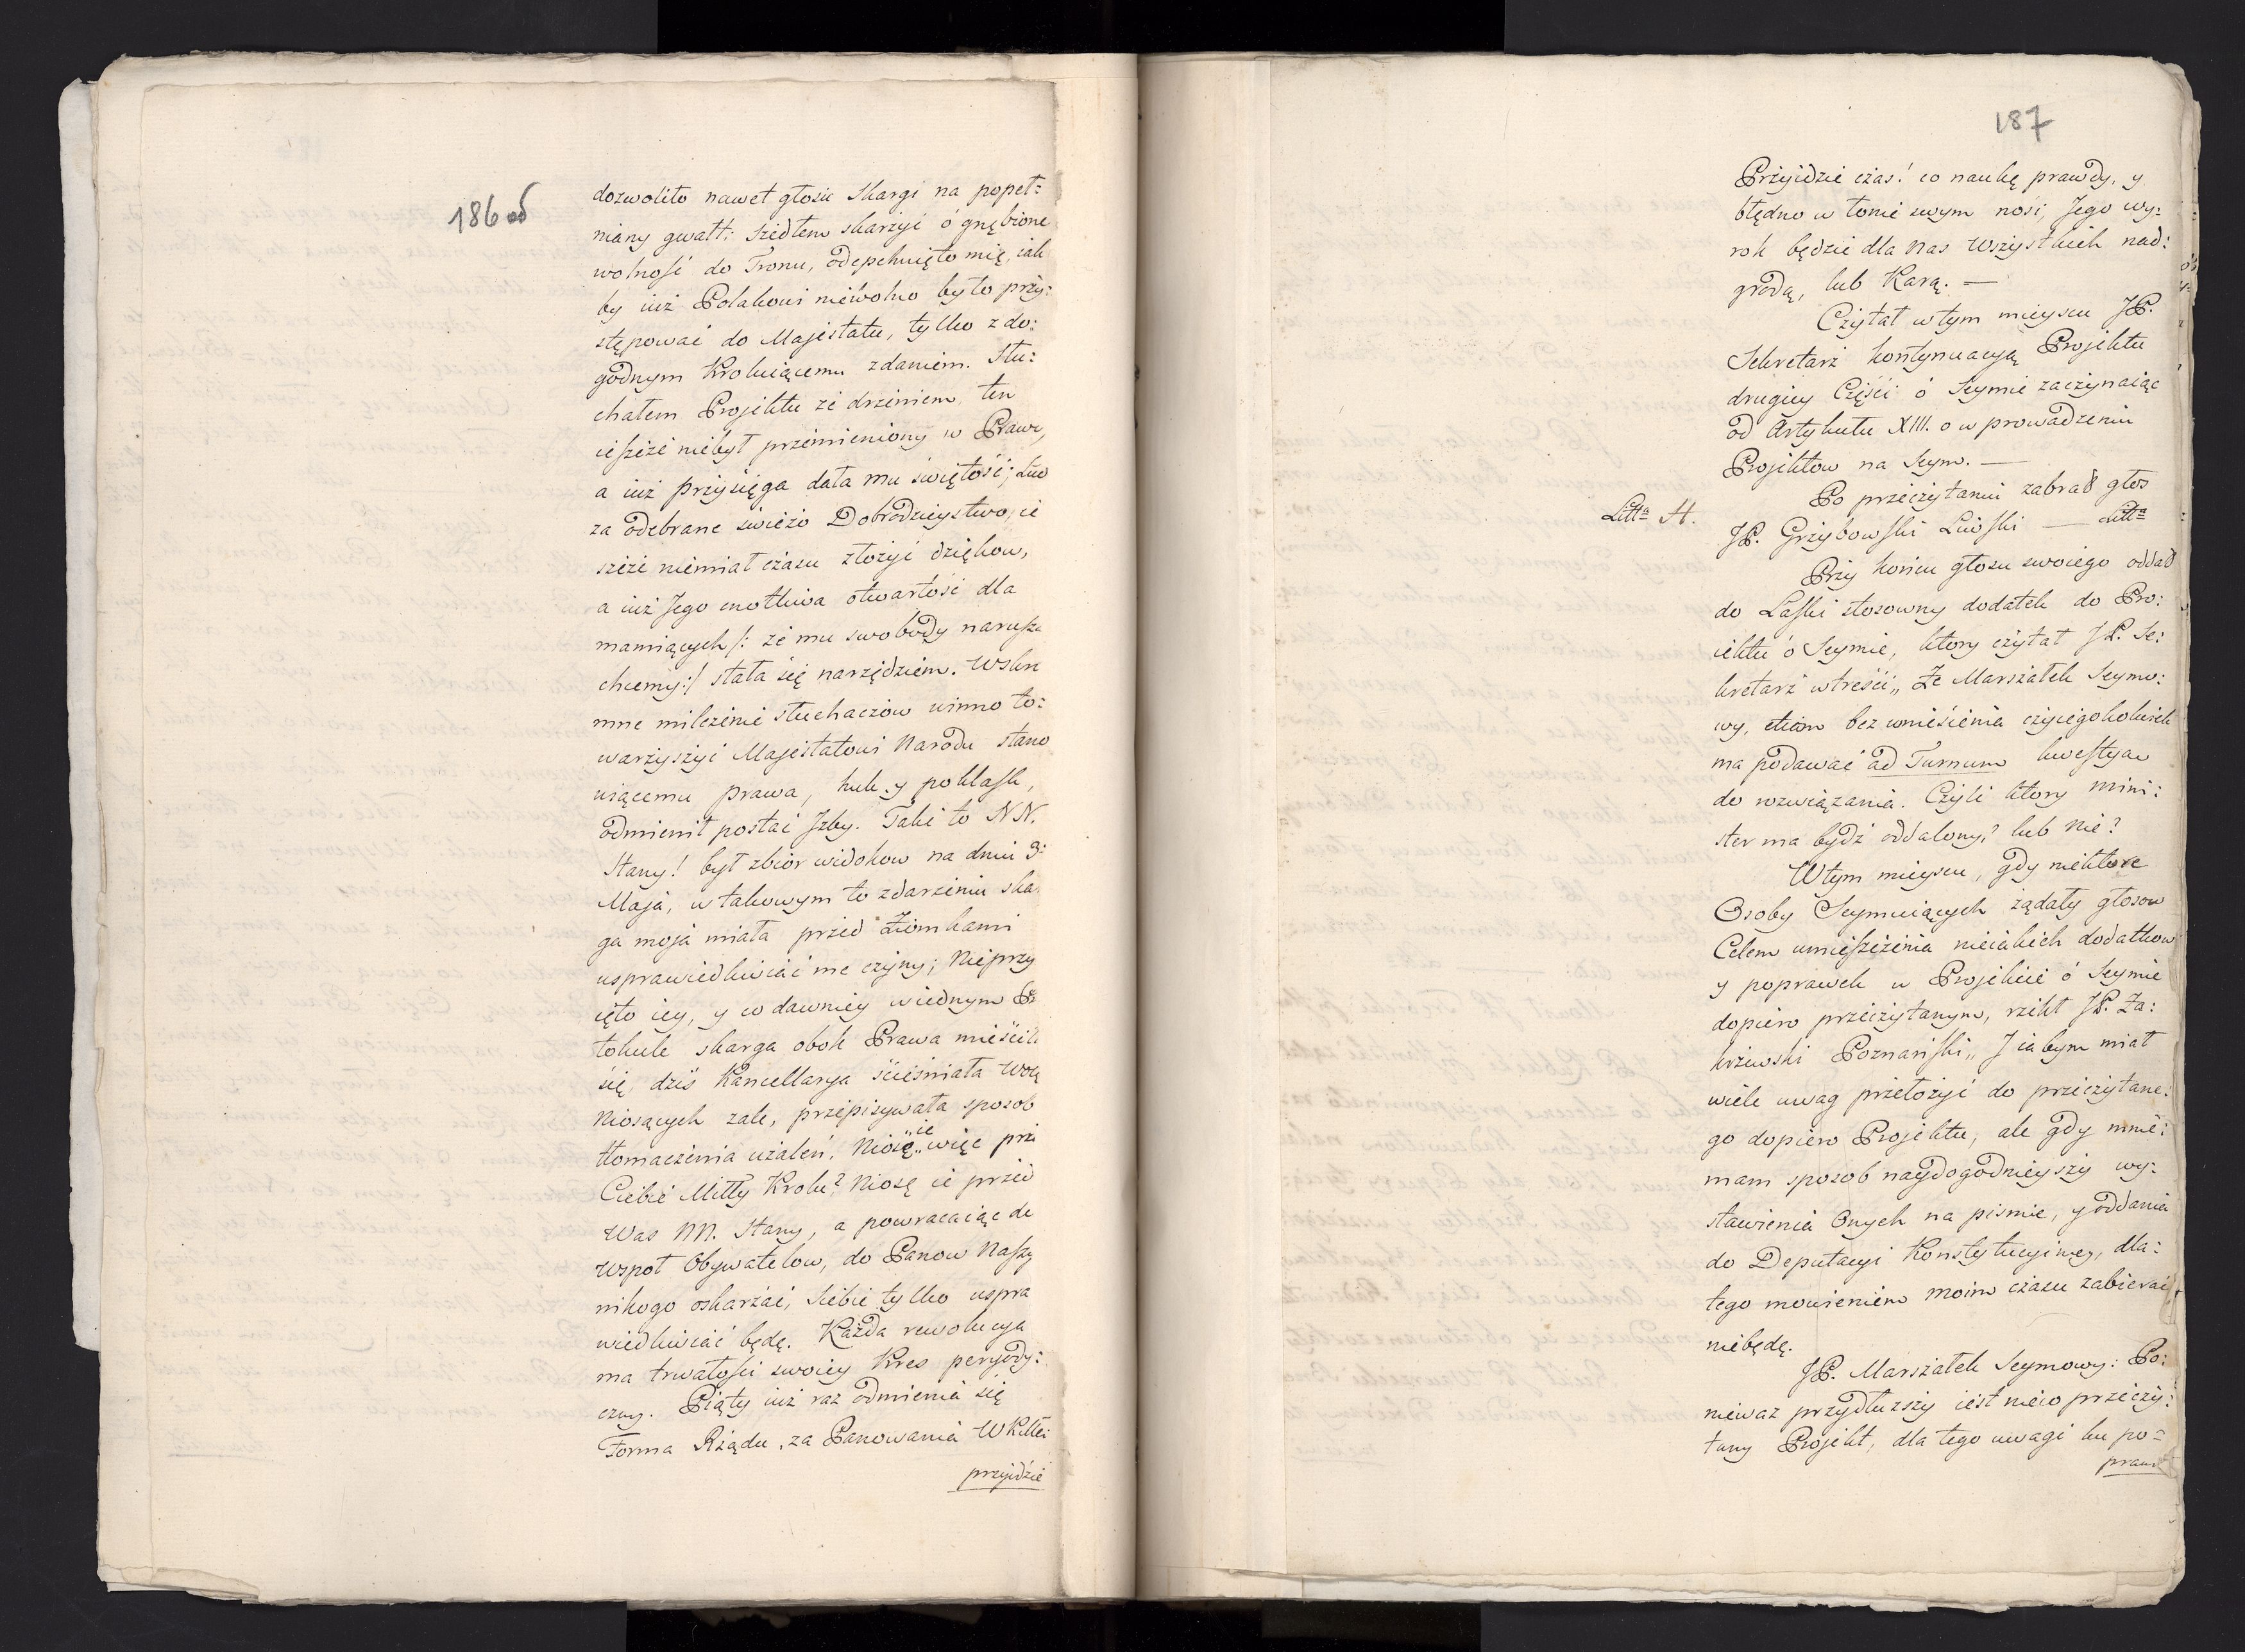 186 od
dozwoliło nawet głosić Skargi na popeł:
niany gwałt: Szedłem skarżyć ó gnębione
wolność do Tronu, odepchnięto mię, iak
by iuż Polakowi niewolno było przy:
stępować do Majestatu, tylko z do:
godnym Kroluiącemu zdaniem. Słu:
chałem Projektu ze drżeniem, ten
ieszcze niebył przemieniony w Prawo,
a iuż przysięga dała mu świętość; Lud
za odebrane świeżo Dobrodzieystwo, ie
szcze niemiał czasu złożyć dziękow,
a iuż Jego cnotliwa otwartość dla
mamiących /: że mu swobody narusza
chcemy:/ stała się narzędziem. Wskro
mne milczenie słuchaczow winno to:
warzyszyć Majestatowi Narodu stano
wiącemu prawa, huk y poklask,
odmienił postać Jzby. Taki to NN.
Stany! był zbiór widokow na dniu 3:
Maja, w takowym to zdarzeniu ska
ga moja miała przed Ziomkami
usprawiedliwiać me czyny; Nieprzy
ięto iey, y co dawniey wiednym Pro
tokule skarga obok Prawa mieścił
się, dziś Kancellarya ścieśniała wolą
Niosących żale, przepisywała sposob
tłomaczenia użaleń. Niosę „ie„ więc prze
Ciebie Miłły Krolu? Niosę ie przed
Was NN. Stany, a powracaiąc do
Wspoł Obywatelow, do Panow Naszy
nikogo oskarżać, Siebie tylko uspra
wiedliwiać będę. Każda rewolucya
ma trwałości swoiey Kres peryody:
czny. Piąty iuż raz odmienia się
Forma Rządu, za Panowania WKMci
przyidzie
187
Przyidzie czas! co naukę prawdy, y
błędno w łonie swym nosi, Jego wy:
rok będzie dla Nas Wszystkich nad:
grodą, lub Karą. —
Czytał w tym mieyscu JP.
Sekretarz kontynuacyą Projektu
drugiey Części ó Seymie zaczynaiąc
od Artykułu XIII. o w prowadzeniu
Projektow na Seym. —
Po przeczytaniu zabrał głos
Litta H.
JP. Grzybowski Liwski — Litta
Przy końcu głosu swoiego oddał
do Laski stosowny dodatek do Pro:
iektu ó Seymie, ktory czytał JP. Se:
kretarz w treści „ Że Marszałek Seymo:
wy, etiam bez wniesienia czyiegokolwiek
ma podawać ad Turnum kwestyą
do rozwiązania. Czyli ktory Mini:
ster ma bydź oddalony? lub Nie?
W tym mieyscu, gdy niektore
Osoby Seymuiących żądały głosow
Celem umieszczenia nieiakich dodatkow
y poprawek w Projekcie ó Seymie
dopiero przeczytanym, rzekł JP. Za:
krzewski Poznański „ J ia bym miał
wiele uwag przełożyć do przeczytane:
go dopiero Projektu, ale gdy mnie:
mam sposob naydogodnieyszy wy:
stawienia Onych na piśmie, y oddania
do Deputacyi Konstytucyiney, dla:
tego mowieniem moim czasu zabierać
niebędę.
JP. Marszałek Seymowy: Po:
nieważ przydłuższy iest nieco przeczy:
tany Projekt, dla tego uwagi ku po=
praw